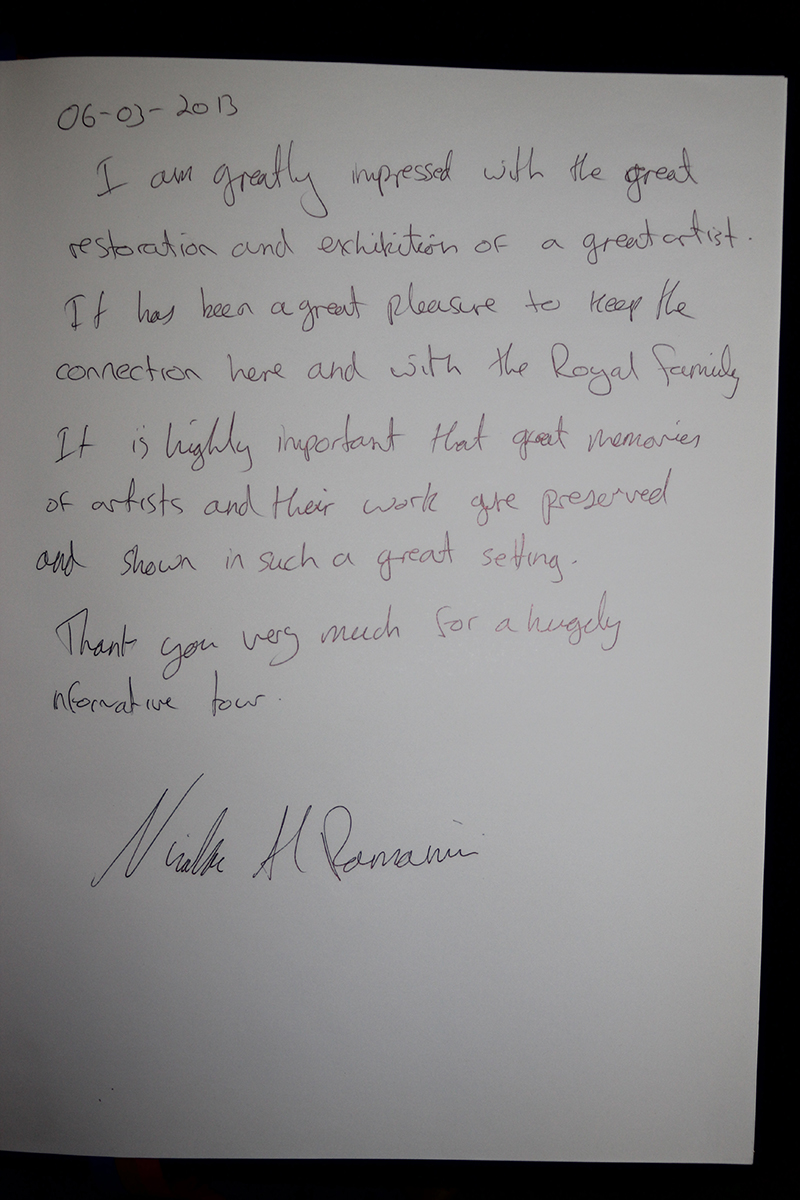 06-03-2013
I am greatly impressed with the great
restoration and exhibition of a great artist.
It has been a great pleasure to keep the
connection here and with the Royal Family
It is highly important that great memories
of artists and their work are preserved
and shown in such a great setting.
Thank you very much for a hugely
nformative tour.